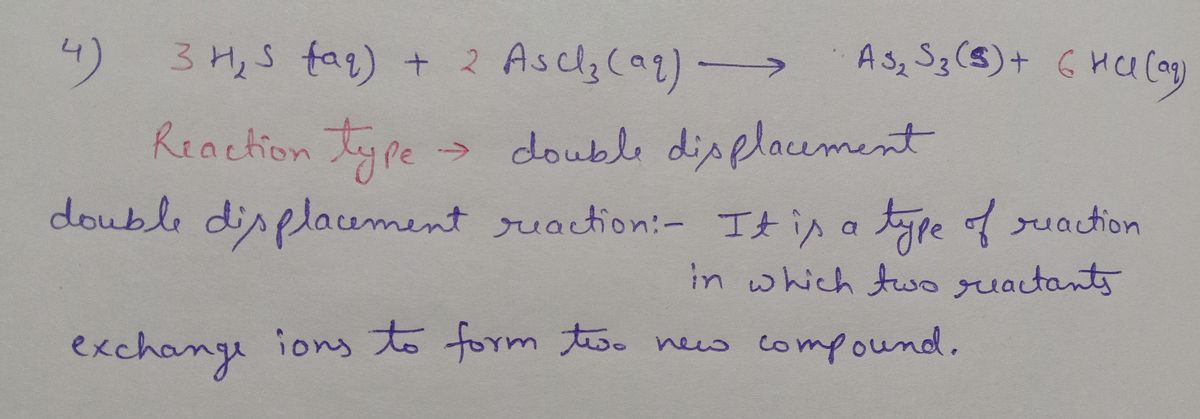 4) 3 H₂S (aq) + 2 AsCl₃(aq) ⟶ As₂S₃(s) + 6 HCl(aq)
Reaction type → double displacement
double displacement reaction:- It is a type of reaction
in which two reactants
exchange ions to form two new compound.